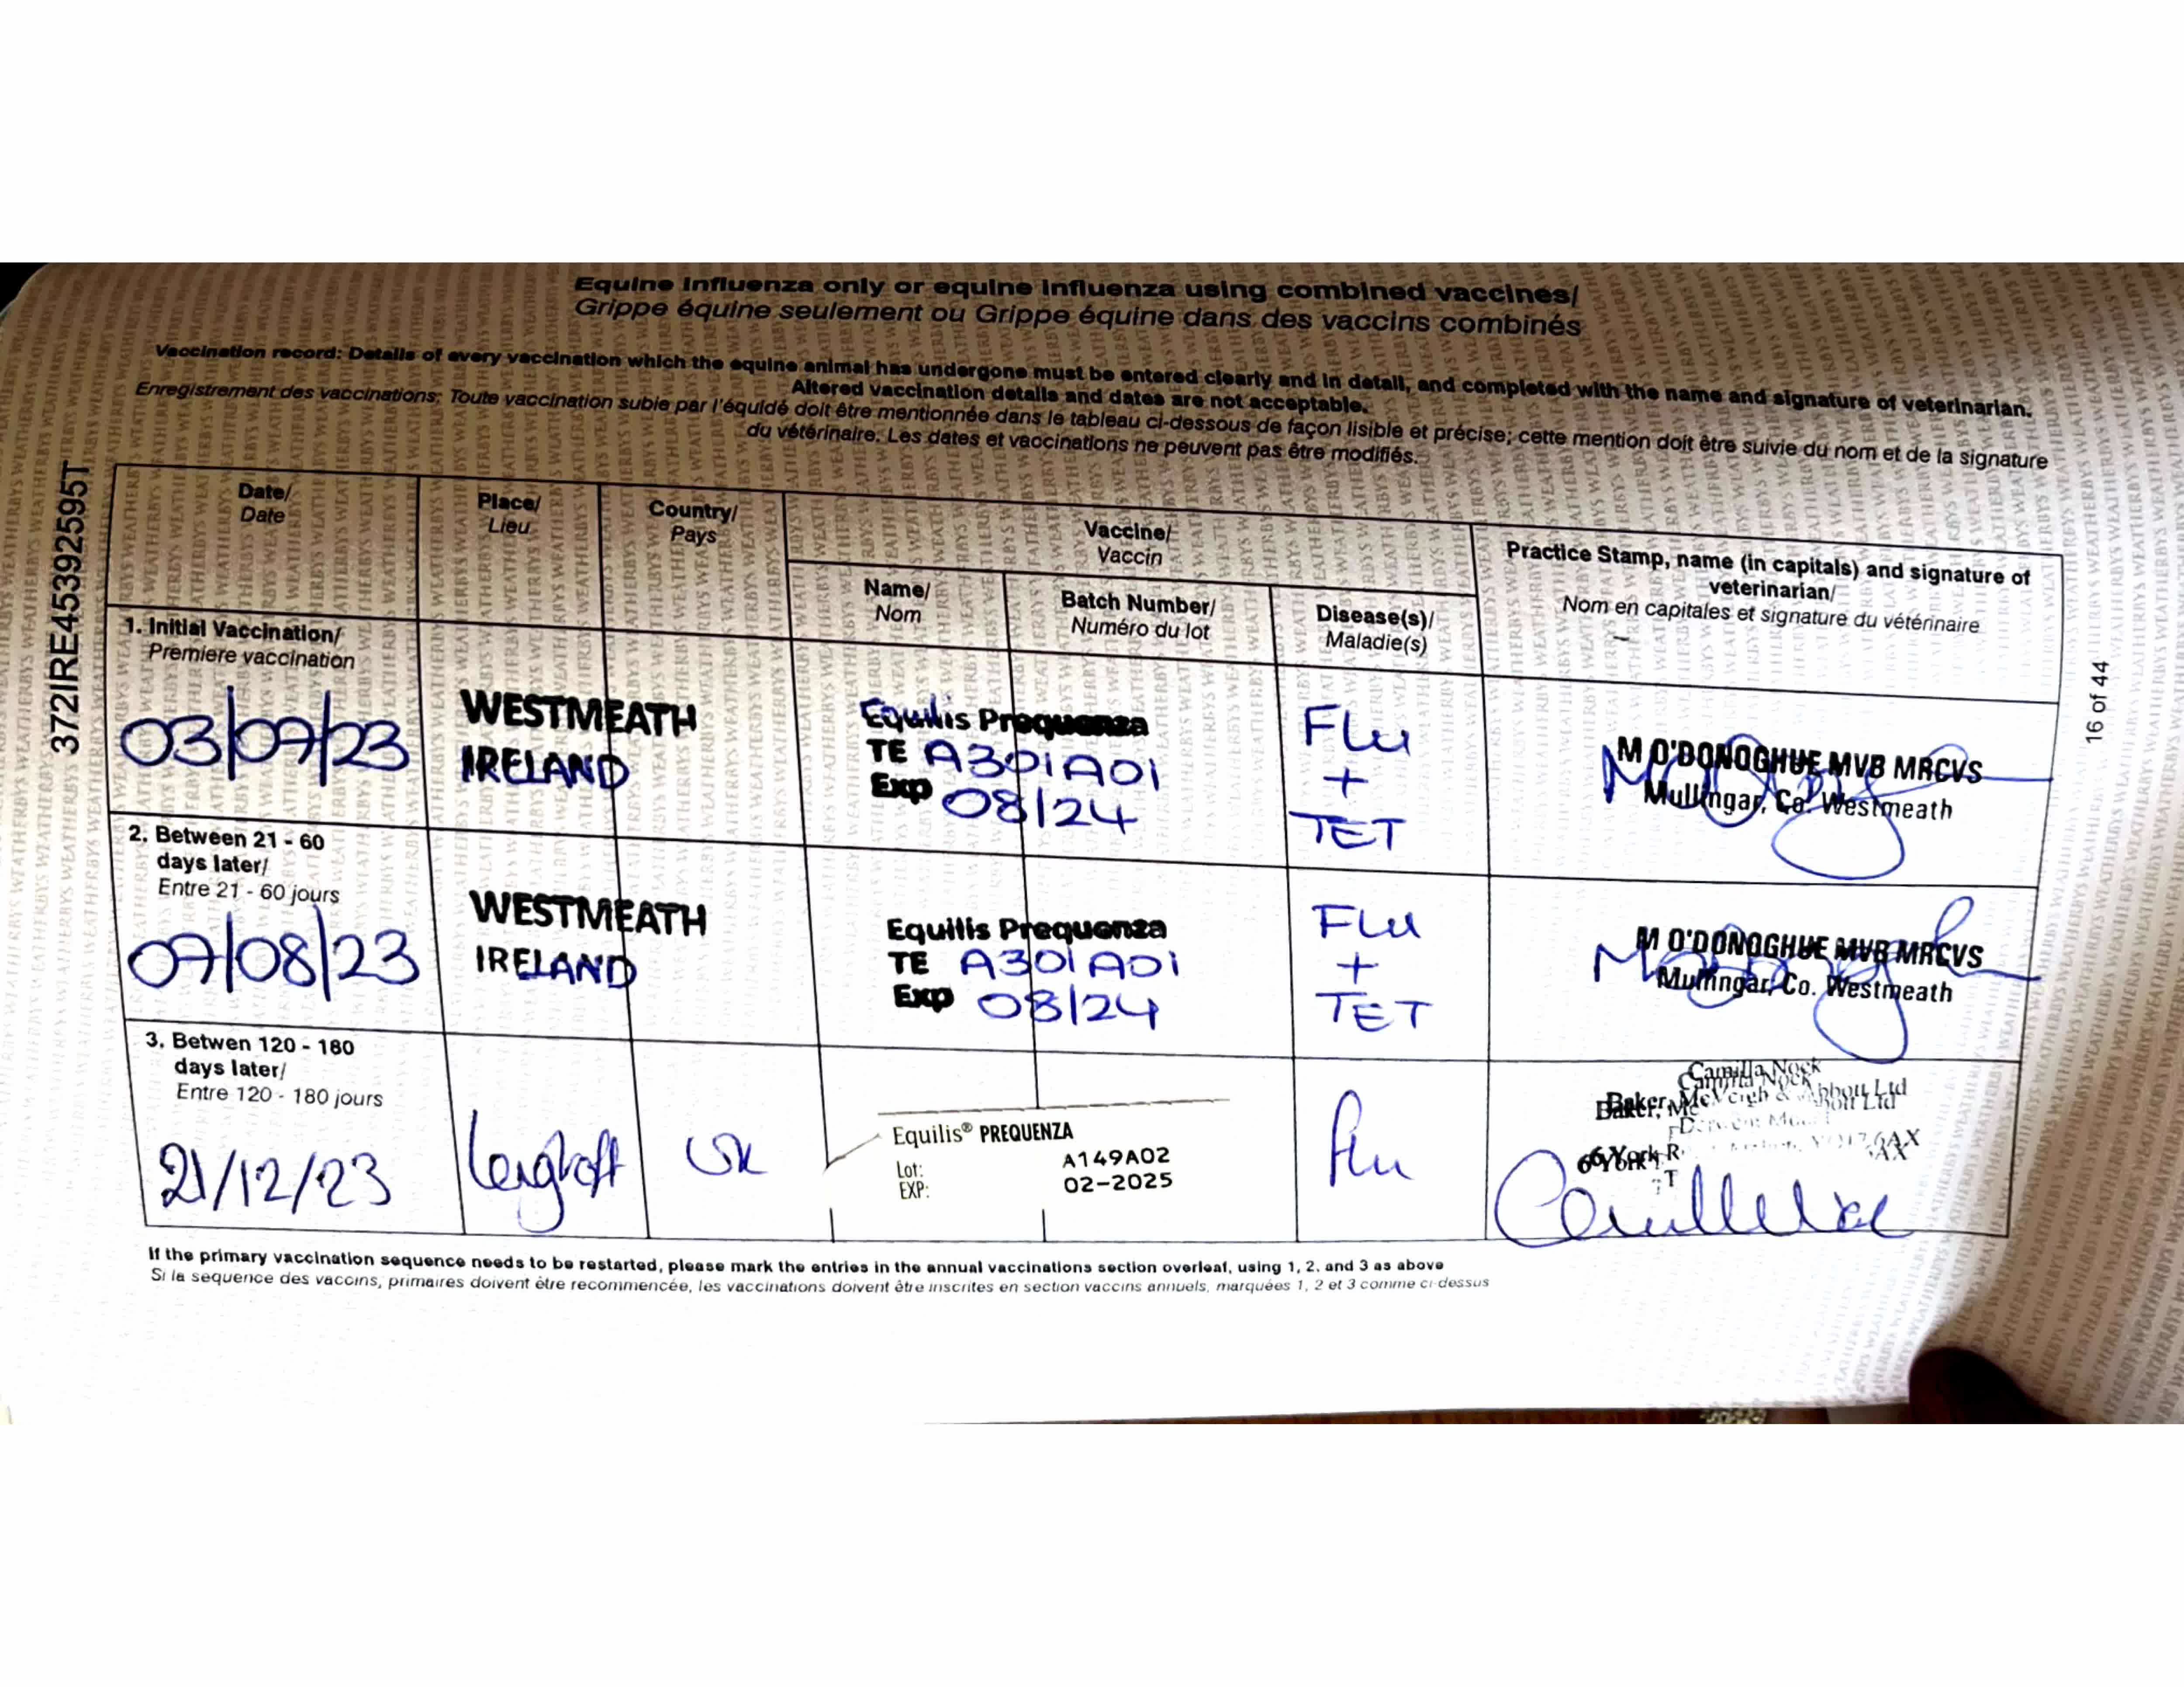 Equine Influenza only or equine influenza using combined vaccines/
Grippe équine seulement ou Grippe équine dans des vaccins combinés
Vaccination record: Details of every vaccination which the equine animal has undergone must be entered clearly and in detail, and completed with the name and signature of veterinarian.
Altered vaccination details and dates are not acceptable.
Enregistrement des vaccinations; Toute vaccination subie par l'équidé doit être mentionnée dans le tableau ci-dessous de façon lisible et précise; cette mention doit être suivie du nom et de la signature
du vétérinaire. Les dates et vaccinations ne peuvent pas être modifiés.
372IRE45392595T
16 of 44
Date/
Date
Place/
Lieu
Country/
Pays
Vaccine/
Vaccin
Name/
Nom
Batch Number/
Numéro du lot
Disease(s)/
Maladie(s)
Practice Stamp, name (in capitals) and signature of
veterinarian/
Nom en capitales et signature du vétérinaire
1. Initial Vaccination/
Premiere vaccination
03/07/23
WESTMEATH
IRELAND
Equilis Prequenza
TE A301A01
Exp 08/24
Flu
+
TET
M O'DONOGHUE MVB MRCVS
Mullingar, Co. Westmeath
2. Between 21 - 60
days later/
Entre 21 - 60 jours
07/08/23
WESTMEATH
IRELAND
Equilis Prequenza
TE A301A01
Exp 08/24
FLu
+
TET
M O'DONOGHUE MVB MRCVS
Mullingar, Co. Westmeath
3. Betwen 120 - 180
days later/
Entre 120 - 180 jours
21/12/23
UK
Equilis® PREQUENZA
Lot: A149A02
EXP: 02-2025
flu
Camilla Nock
Baker, McVeigh & Abbott Ltd
66 York R
If the primary vaccination sequence needs to be restarted, please mark the entries in the annual vaccinations section overleaf, using 1, 2, and 3 as above
Si la sequence des vaccins, primaires doivent être recommencée, les vaccinations doivent être inscrites en section vaccins annuels, marquées 1, 2 et 3 comme ci-dessus